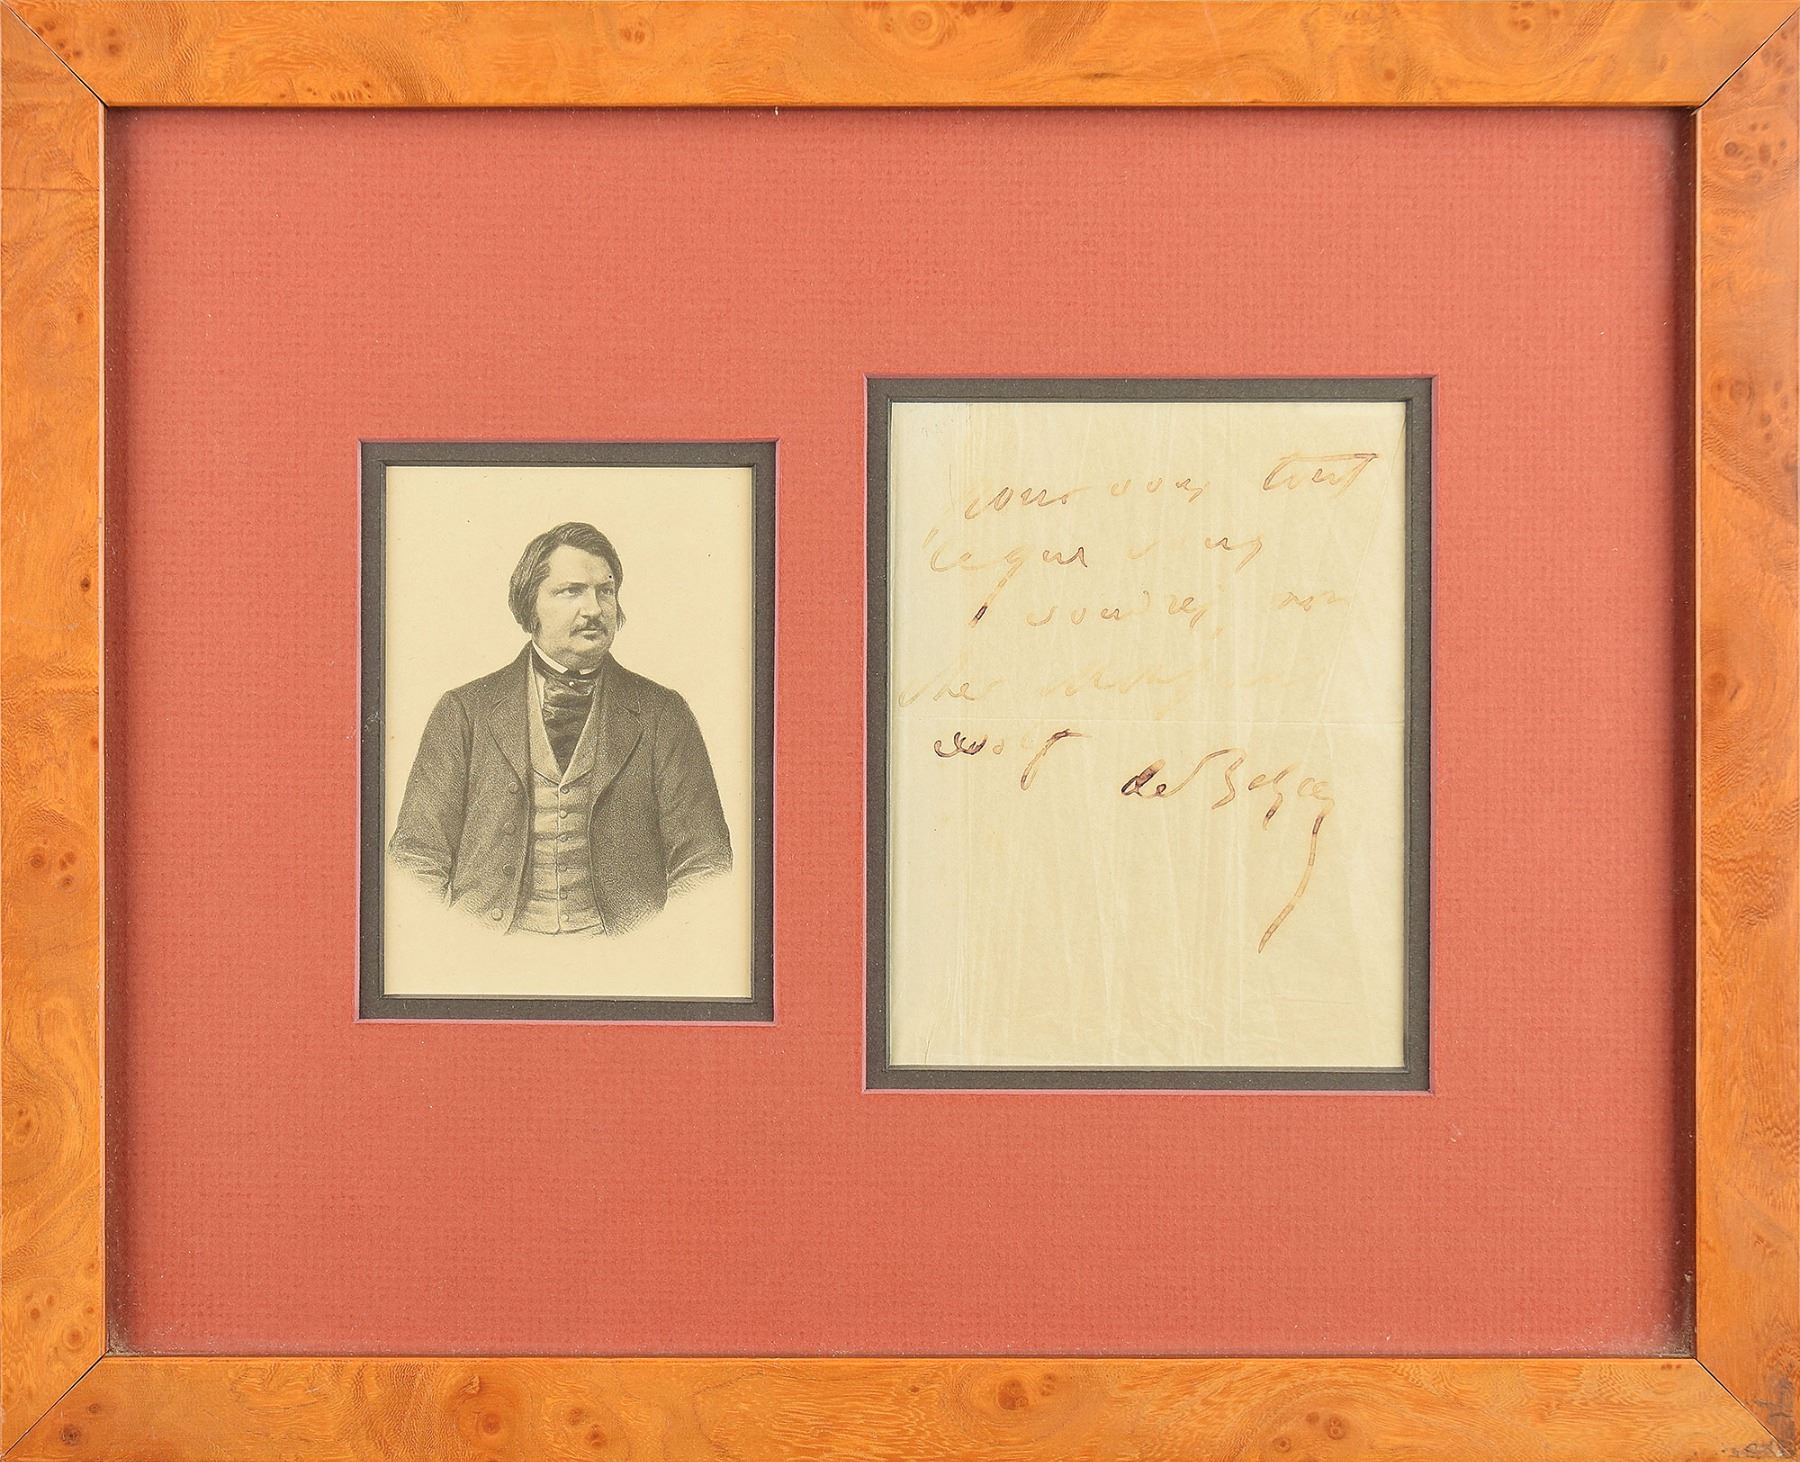 pour vous tout
ce que vous
voudrez, mon
cher
de Balzac